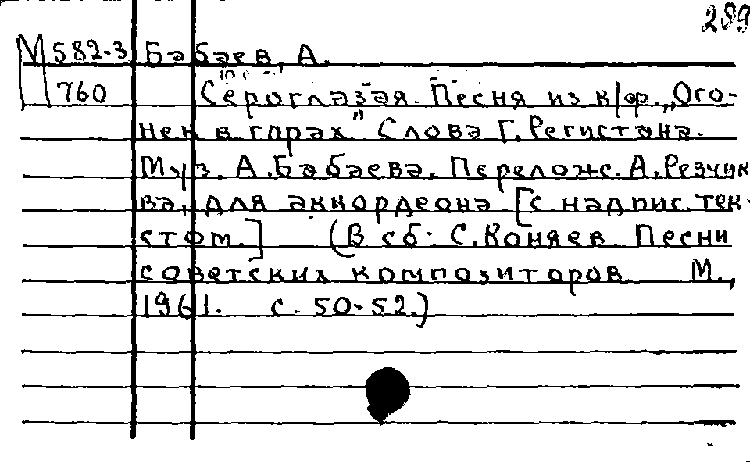 289
М 582-3 Бабаев, А.
760 Сероглазая. Песня из к/ф. „Ого-
нек в горах" Слова Г. Регистана.
Муз. А. Бабаева. Перелож. А. Резчик
ва, для аккордеона [с надпис. тек-
стом.] (В сб: С. Коняев. Песни
советских композиторов М.,
1961. с. 50-52.)